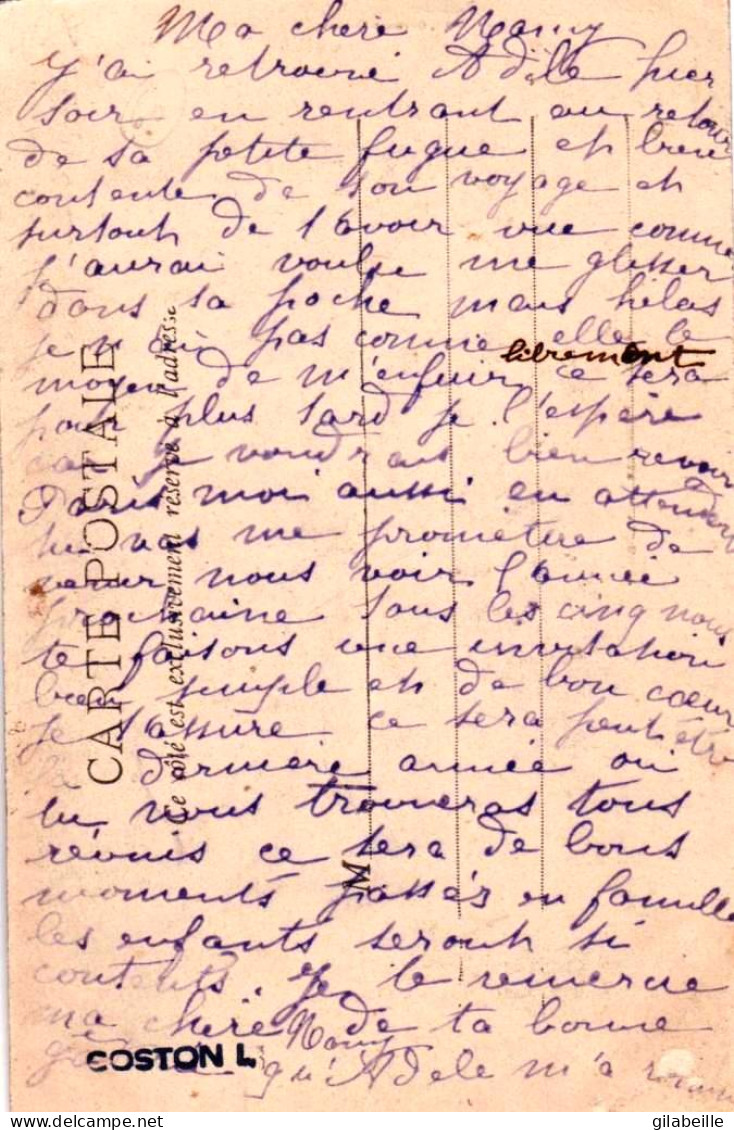 Ma chere Nany
J'ai retrouvé Adèle hier
soir en rentrant au retour
de sa petite fugue et bien
contente de son voyage et
surtout de t'avoir vue comme
j'aurai voulue me glisser
dans sa poche mais hélas
je n'ai pas comme elle le
librement
moyen de m'enfuir, ce sera
pour plus tard je l'espère
car je voudrais bien revoir
Paris moi aussi en attendant
tu vas me prometre de
venir nous voir l'année
prochaine tous les cinq nous
te faisons une invitation
bien simple et de bon cœur
je t'assure ce sera peut être
la dernière année ou
tu nous trouveras tous
réunis ce sera de bons
moments passés en famille
les enfants seront si
contents. Je te remercie
ma chère Nany de ta bonne
qu'Adèle m'a
CARTE POSTALE
Ce côté est exclusivement réservé à l'adresse
M
COSTON L.
delcampe.net
gilabeille